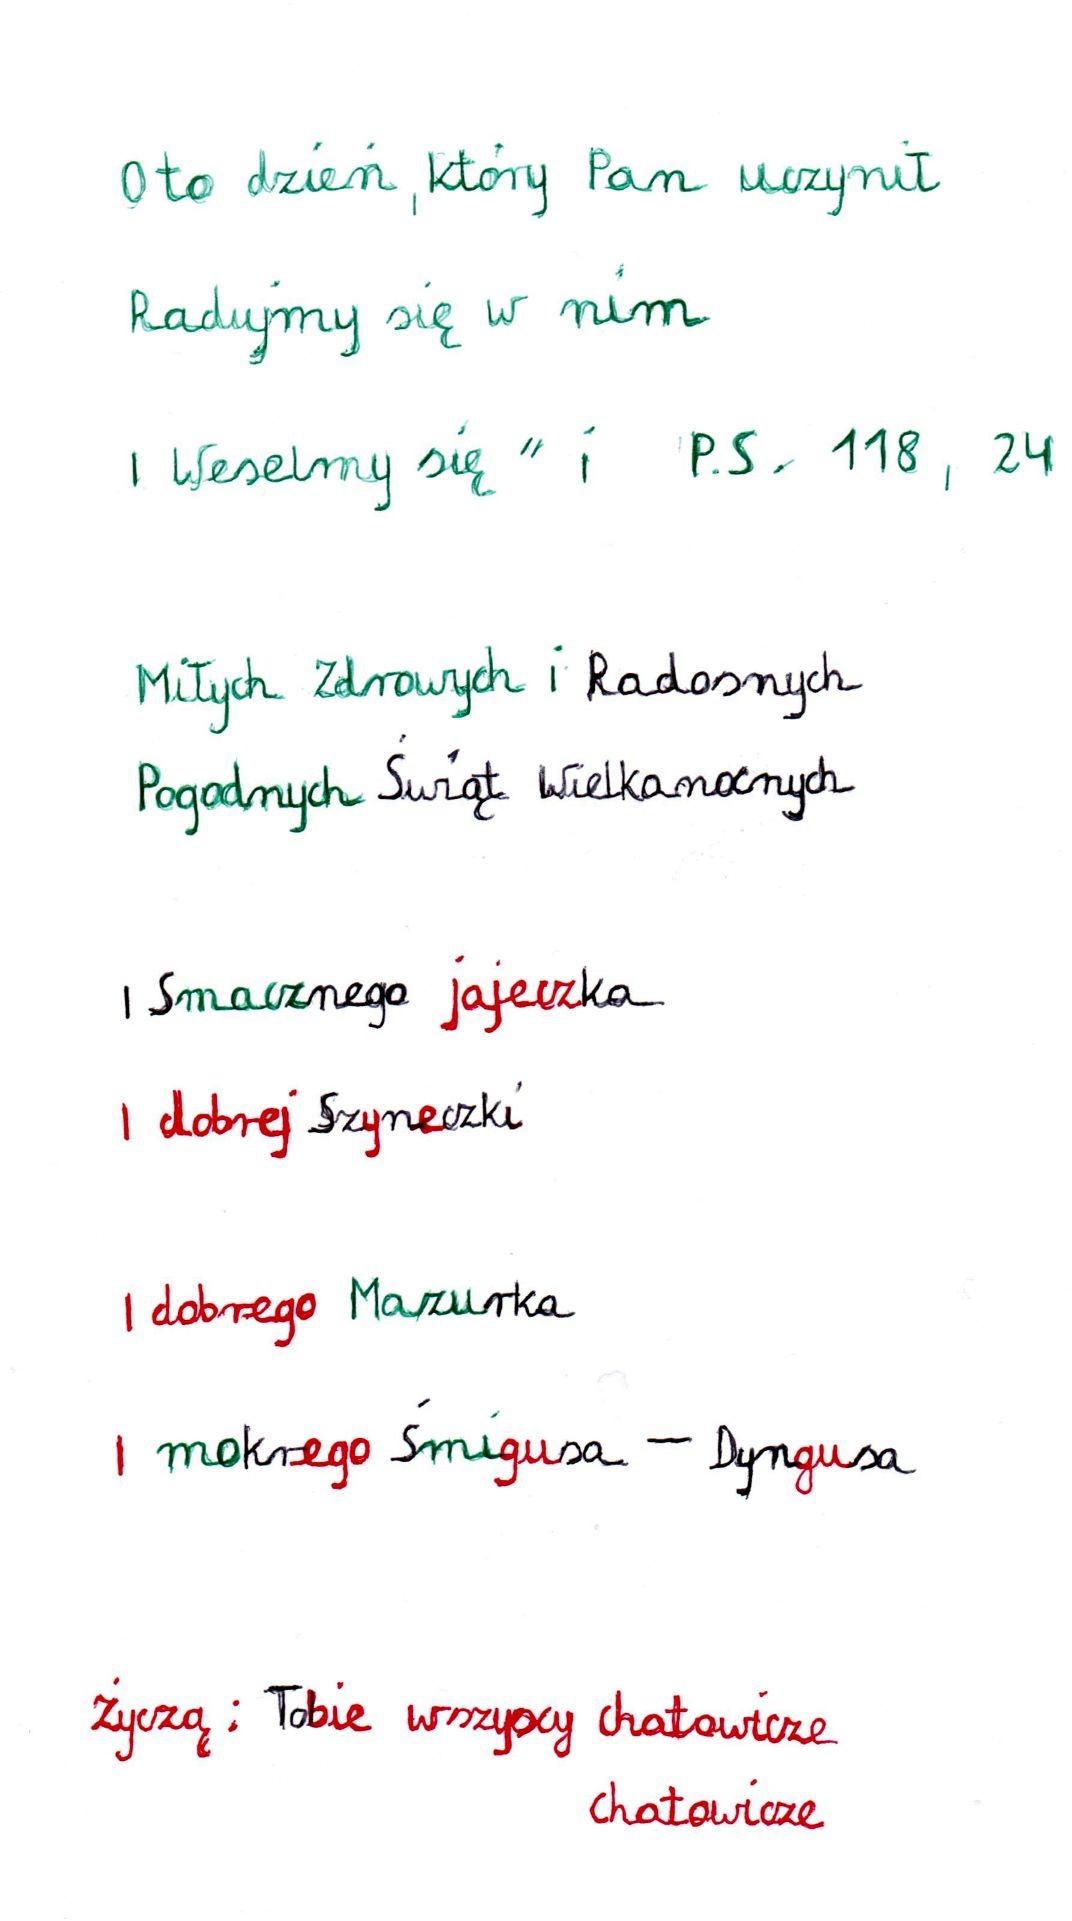 Oto dzień, który Pan uczynił
Radujmy się w nim
I Weselmy się " i P.S. 118, 24
Miłych Zdrowych i Radosnych
Pogodnych Świąt Wielkanocnych
I Smacznego jajeczka
I dobrej Szyneczki
I dobrego Mazurka
I mokrego Śmigusa – Dyngusa
Życzą: Tobie wszyscy chatowicze
chatowicze